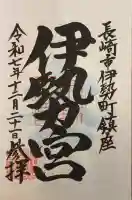 長崎市伊勢町鎮座
伊勢宮
令和七年十二月二十一日参拝